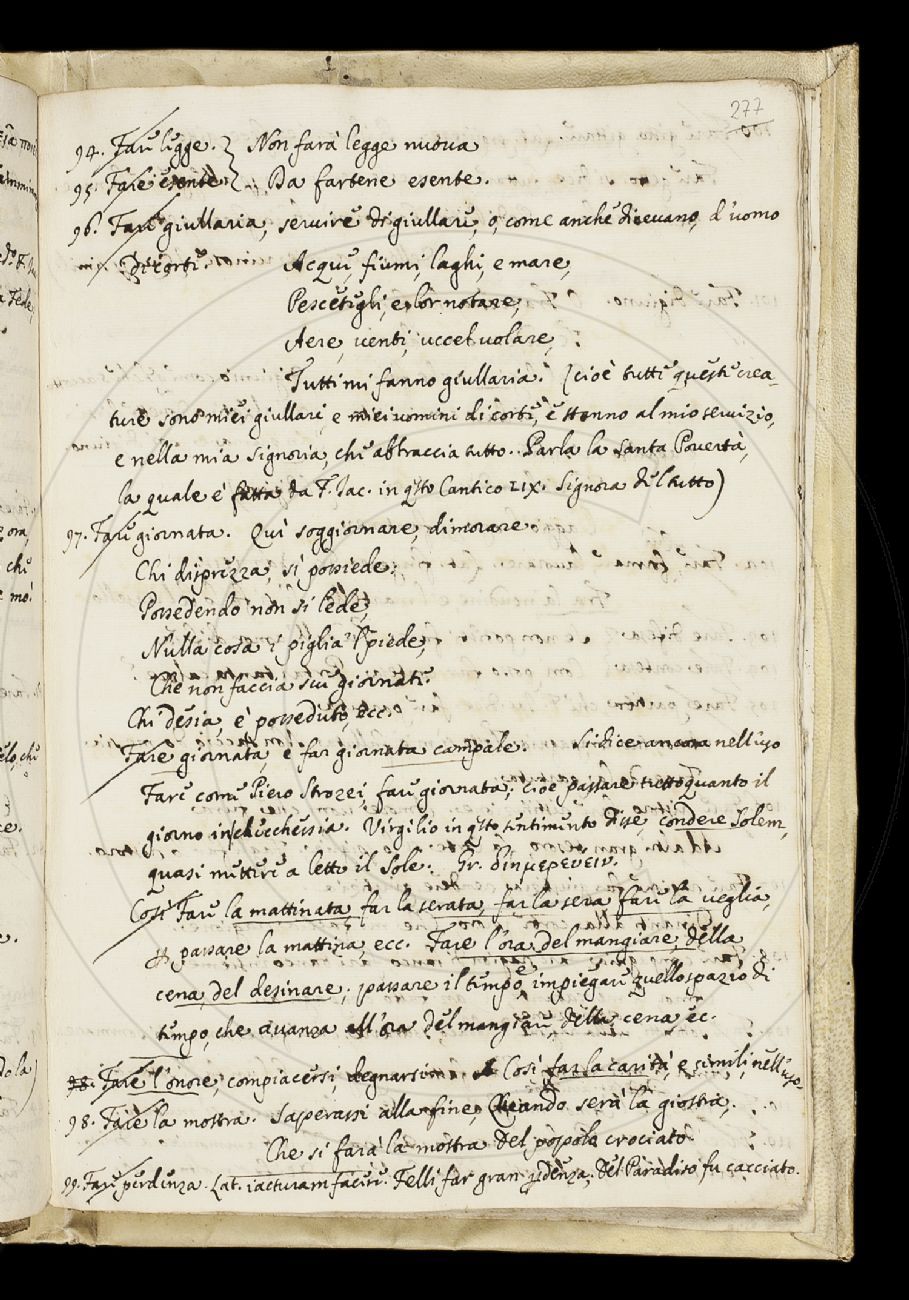 277
94. Fare legge. } Non farà legge nuova
95. Fare esente } Da fartene esente.
96. Fare giullaria, servire di giullare, o, come anche dicevano, d'uomo
di corte. Acque, fiumi, laghi, e mare,
Pescetegli, e lor notare,
Aere, venti, uccel volare,
Tutti mi fanno giullaria. (cioè tutte queste crea-
ture sono miei giullari, e miei uomini di corte, e stanno al mio servizio,
e nella mia signoria, che abbraccia tutto. Parla la Santa Povertà,
la quale è fatta da F. Jac. in qsto Cantico LIX. Signora del tutto)
97. Fare giornata. Qui soggiornare, dimorare
Chi disprezza, si possiede;
Possedendo non si lede;
Nulla cosa i piglia 'l piede,
Che non faccia sue giornate.
Chi desia, è posseduto, ecc.
Fare giornata è far giornata campale. Si dice ancora nell'uso
Fare come Piero Strozzi, fare giornata; cioè passare tutto quanto il
giorno in Virgilio in qsto sentimento disse, condere Solem,
quasi mettere a letto il Sole. Gr. διημερεύειν.
Così Fare la mattinata, far la serata, far la sera fare la veglia,
p passare la mattina, ecc. Fare l'ora del mangiare, della
cena, del desinare; passare il tempo, e impiegare quello spazio di
tempo, che avanza all'ora del mangiare, della cena ec.
98. Fare l'onore, compiacersi, degnarsi. Così far la carità, e simili, nell'uso.
98. Fare la mostra. Saperassi alla fine, Quando serà la giostra,
Che si farà la mostra Del popolo crociato
99. Fare perdenza. Lat. iacturam facere. Felli far gran pdenza, Del Paradiso fu cacciato.